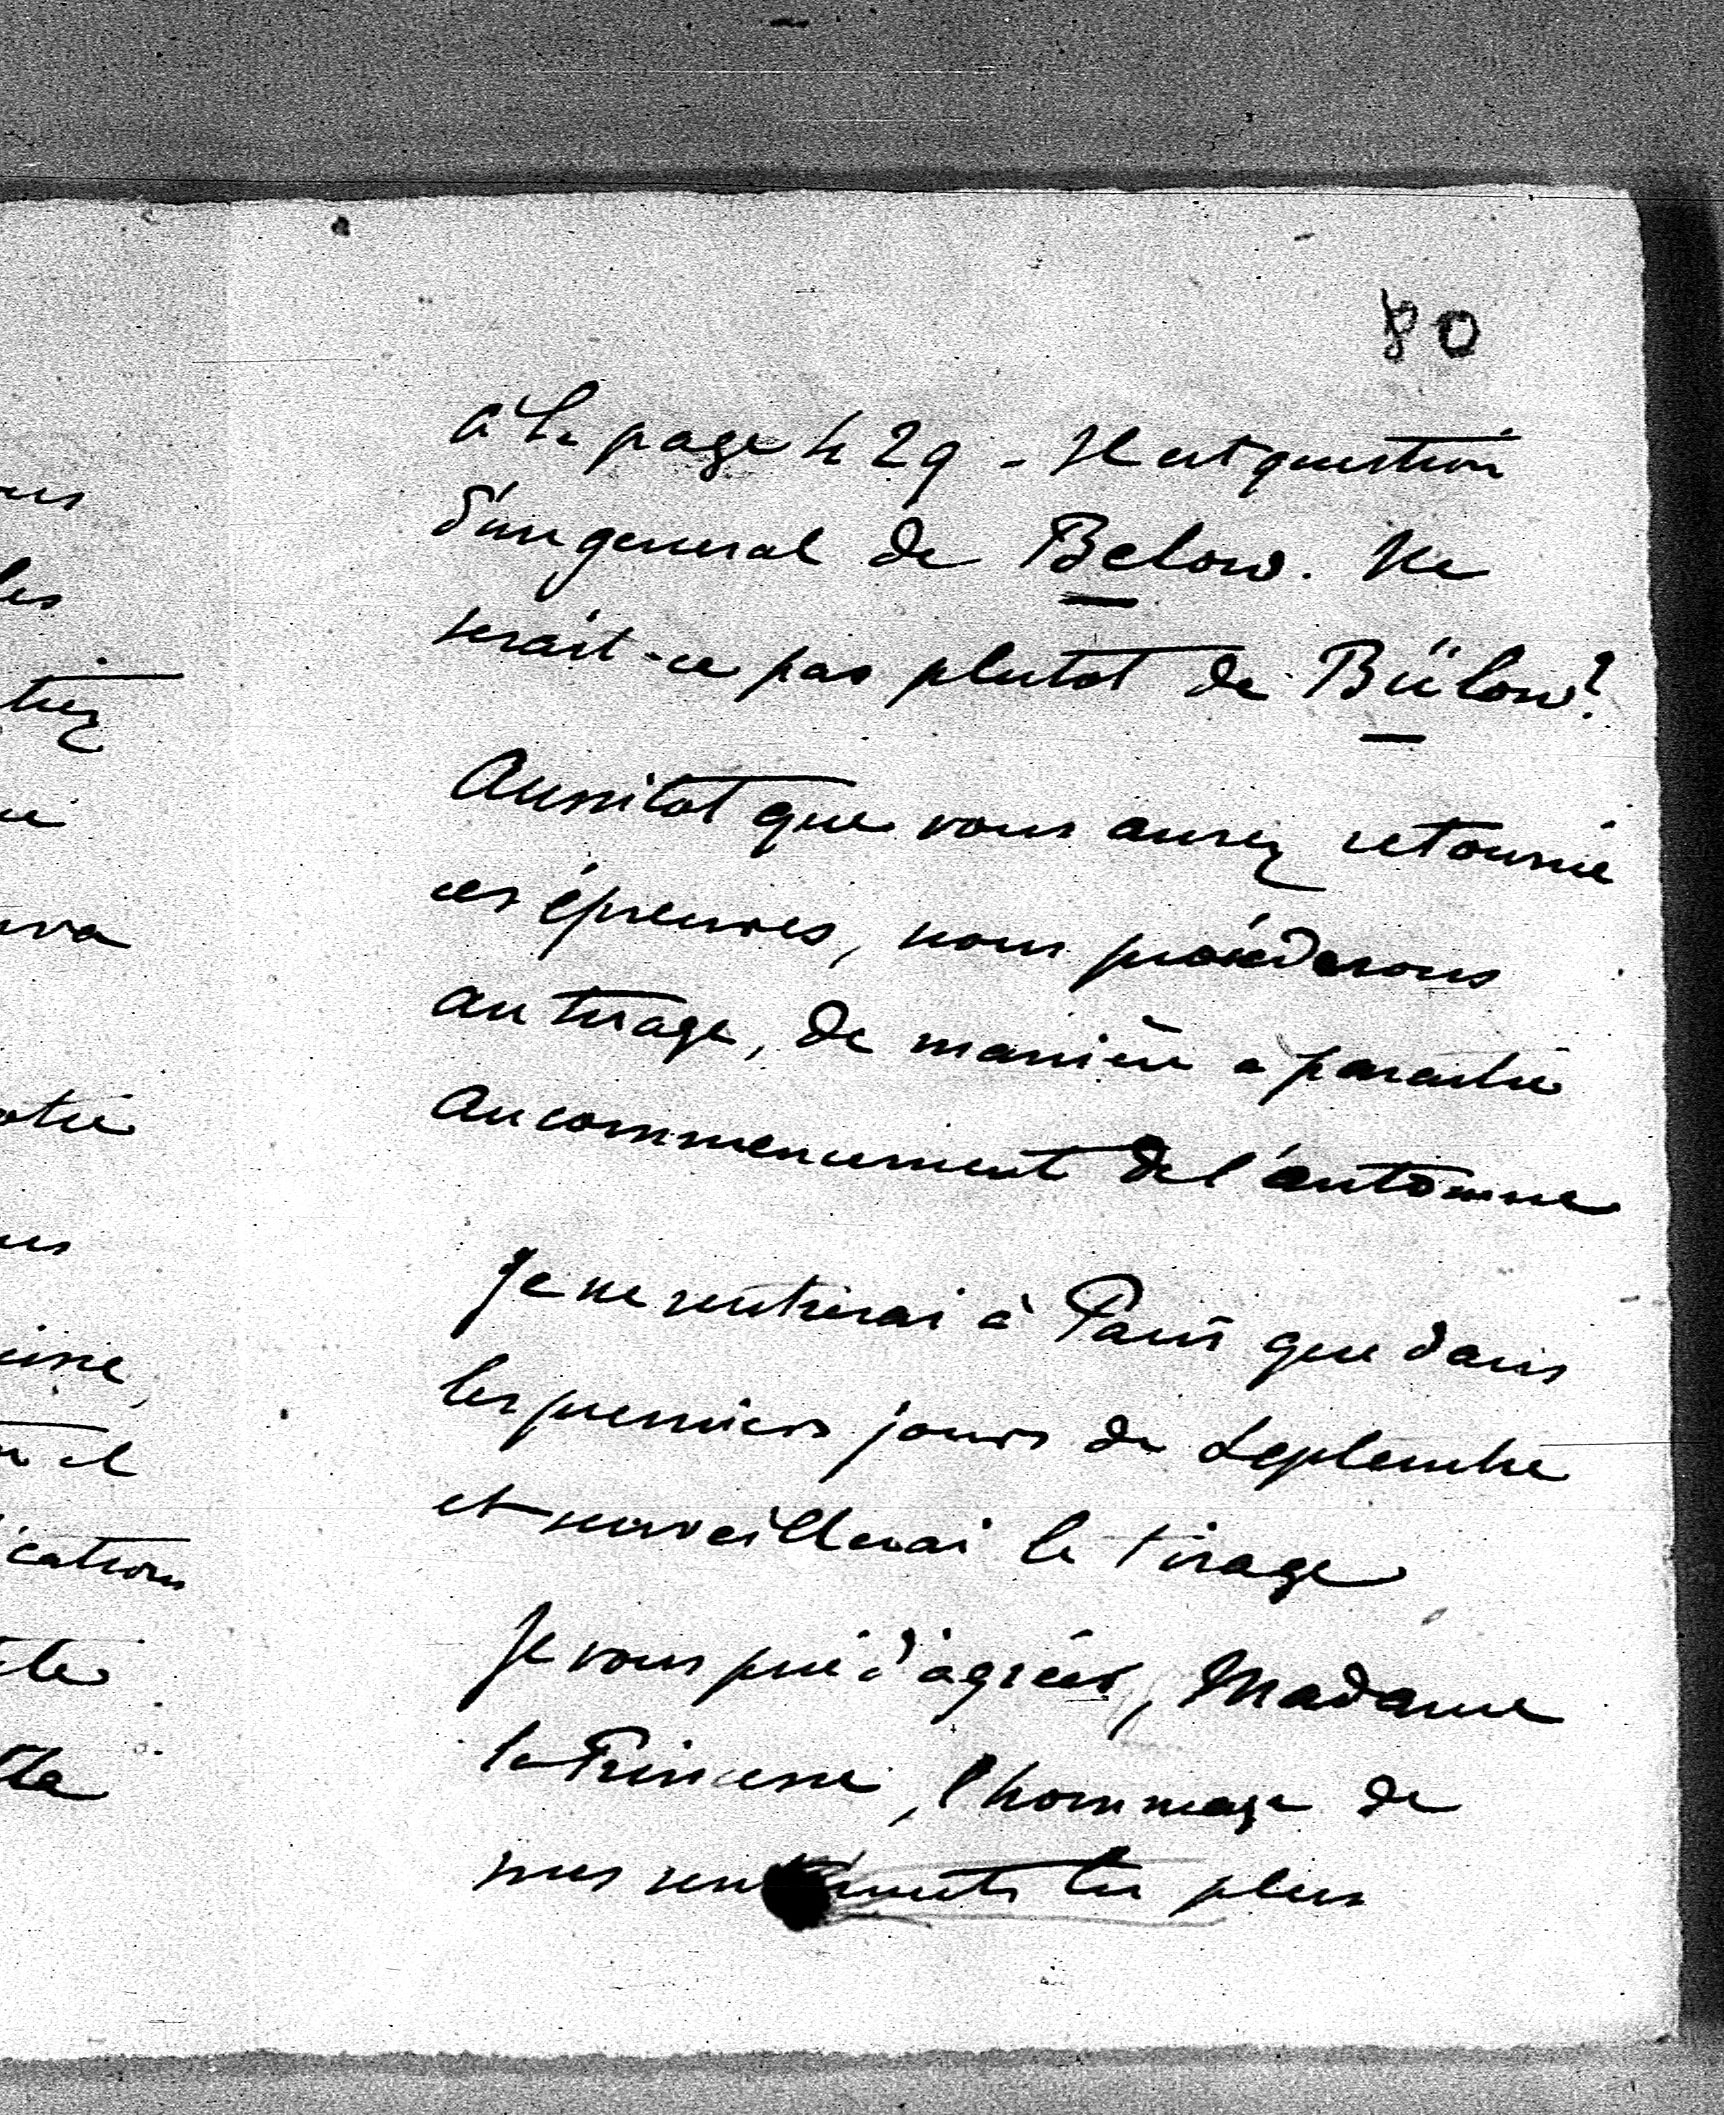 80
à la page 429 - Il est question
d'un general de Below. Ne
serait-ce pas plutot de Bülow?
Aussitot que vous aurez retourné
ces épreuves, nous procéderons
au tirage, de manière a paraitre
au commencement de l'automne
Je ne rentrerai à Paris que dans
les premiers jours de Septembre
et surveillerai le tirage
Je vous prie d'agréer, Madame
la Princesse, l'hommage de
mes sentiments les plus